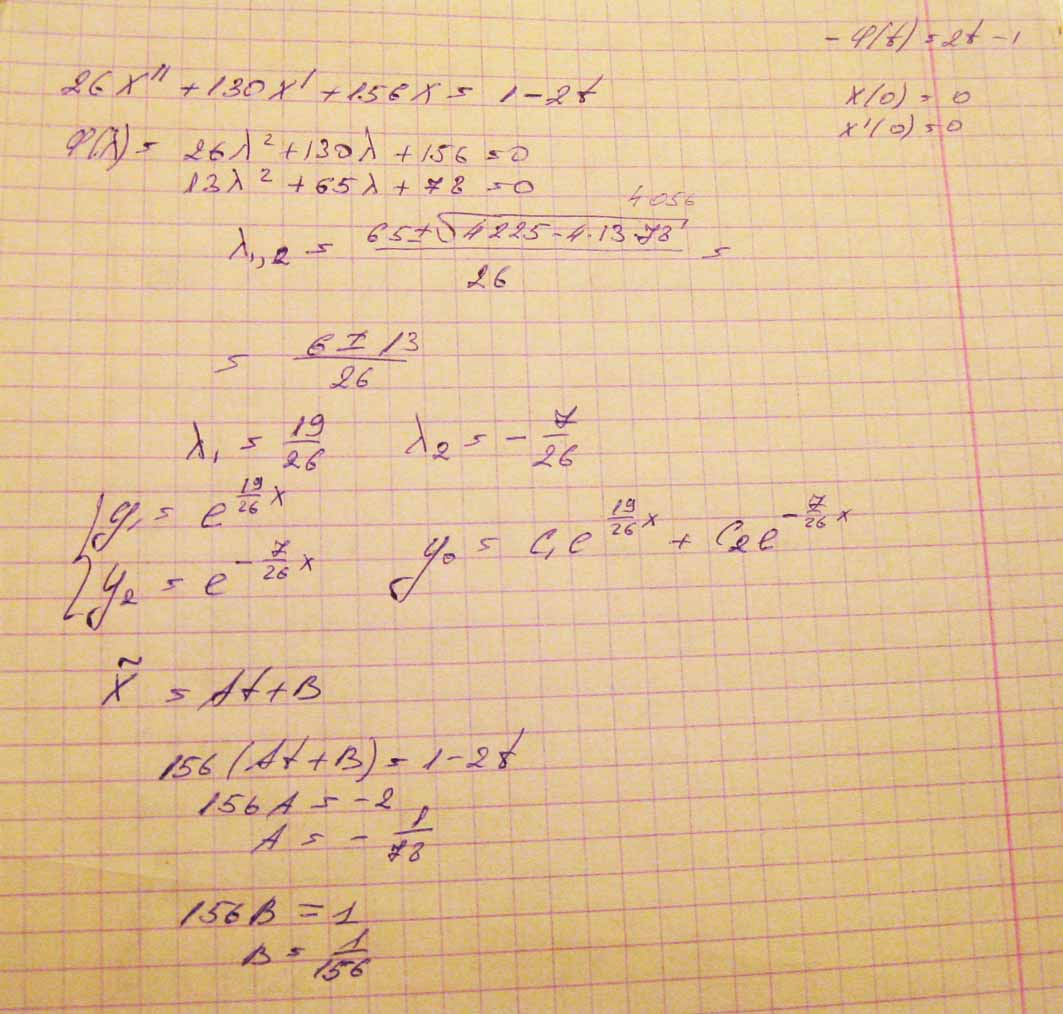 - φ(t) = 2t - 1
26x'' + 130x' + 156x = 1 - 2t
x(0) = 0
x'(0) = 0
φ(λ) = 26λ² + 130λ + 156 = 0
13λ² + 65λ + 78 = 0
4056
λ₁,₂ = (65 ± √(4225 - 4·13·78)) / 26 =
= (6 ± 13) / 26
λ₁ = 19/26 λ₂ = - 7/26
{ y₁ = e^(19/26 x)
y₂ = e^(- 7/26 x) y₀ = C₁e^(19/26 x) + C₂e^(- 7/26 x)
x̃ = At + B
156(At + B) = 1 - 2t
156A = -2
A = - 1/78
156B = 1
B = 1/156